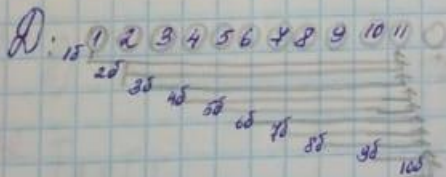 Д: 1 2 3 4 5 6 7 8 9 10 11
1б
2б
3б
4б
5б
6б
7б
8б
9б
10б